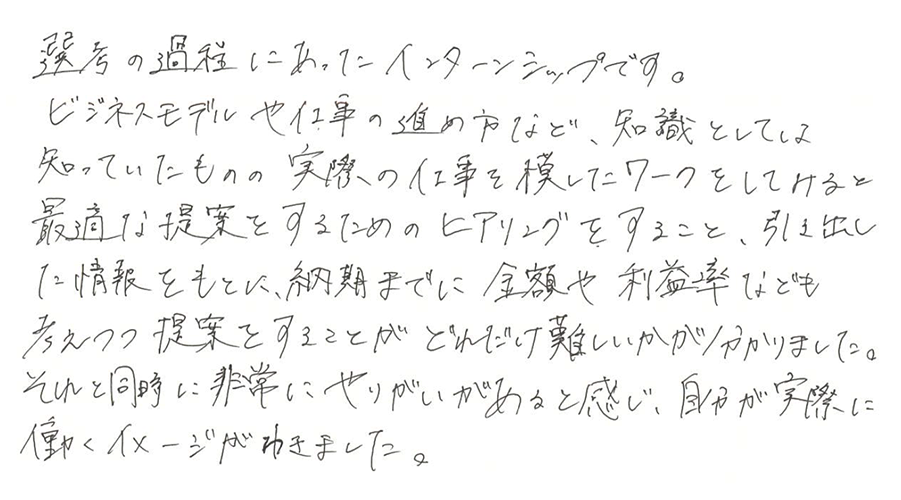 選考の過程にあったインターンシップです。
ビジネスモデルや仕事の進め方など、知識としては
知っていたものの実際の仕事を模したワークをしてみると
最適な提案をするためのヒアリングをすること、引き出し
た情報をもとに、納期までに金額や利益率なども
考えつつ提案をすることがどれだけ難しいかが分かりました。
それと同時に非常にやりがいがあると感じ、自分が実際に
働くイメージがわきました。